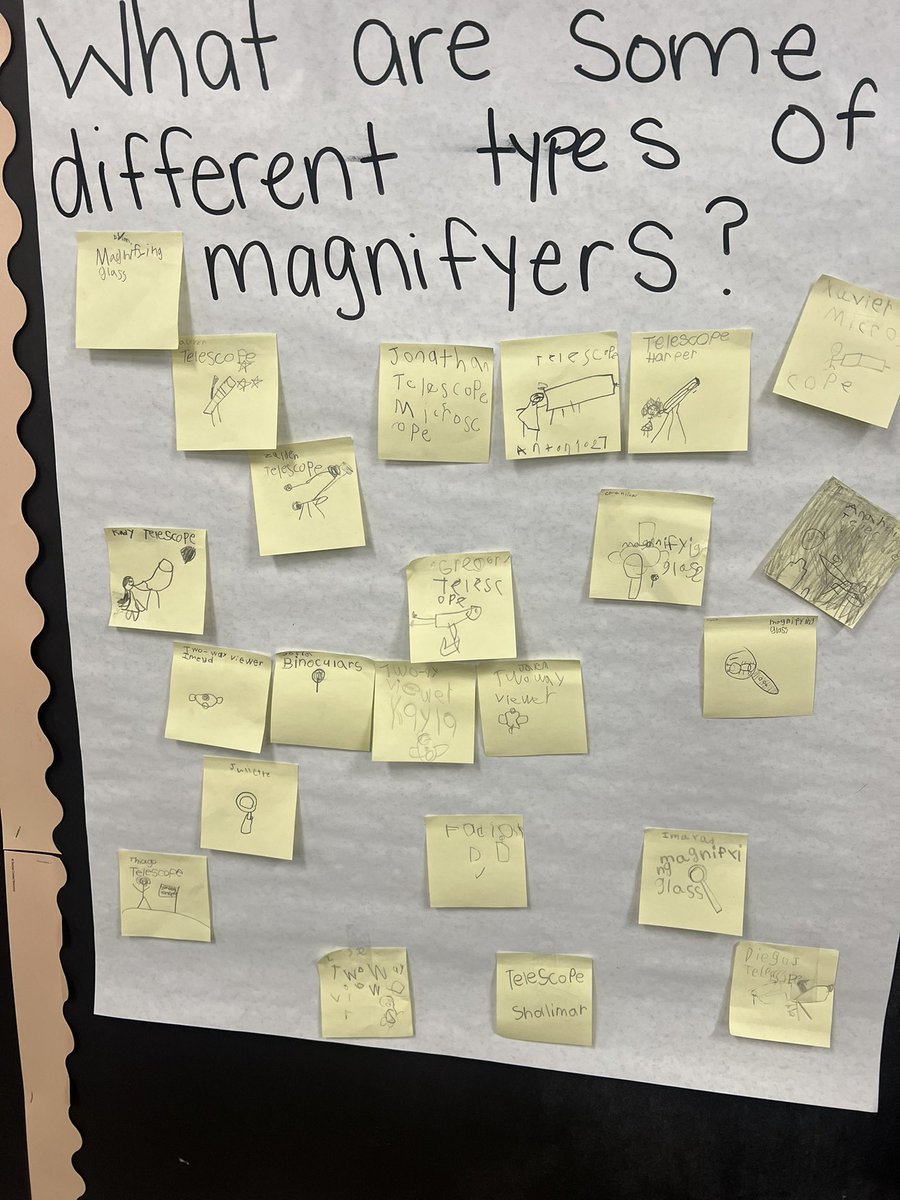 What are some
different types of
magnifyers?
Magnifizing
glass
TELESCOPE
Jonathan
Telescope
Microsc
ope
TELESCOPE
Anton1027
TELESCOPE
Harper
Xavier
Micro
cope
TELESCOPE
magnifyig
glass
Kady TELESCOPE
Gregory
TELESC
OPE
magnifying
glass
Two-way viewer
Imeyd
Binoculars
Two-
viewer
Kayla
Jaren
Two way
viewer
Juliette
Imaray
magnifyi
ng
glass
Thiago
TELESCOPE
Two Way
TELESCOPE
Shalimar
Diegos
Telescope